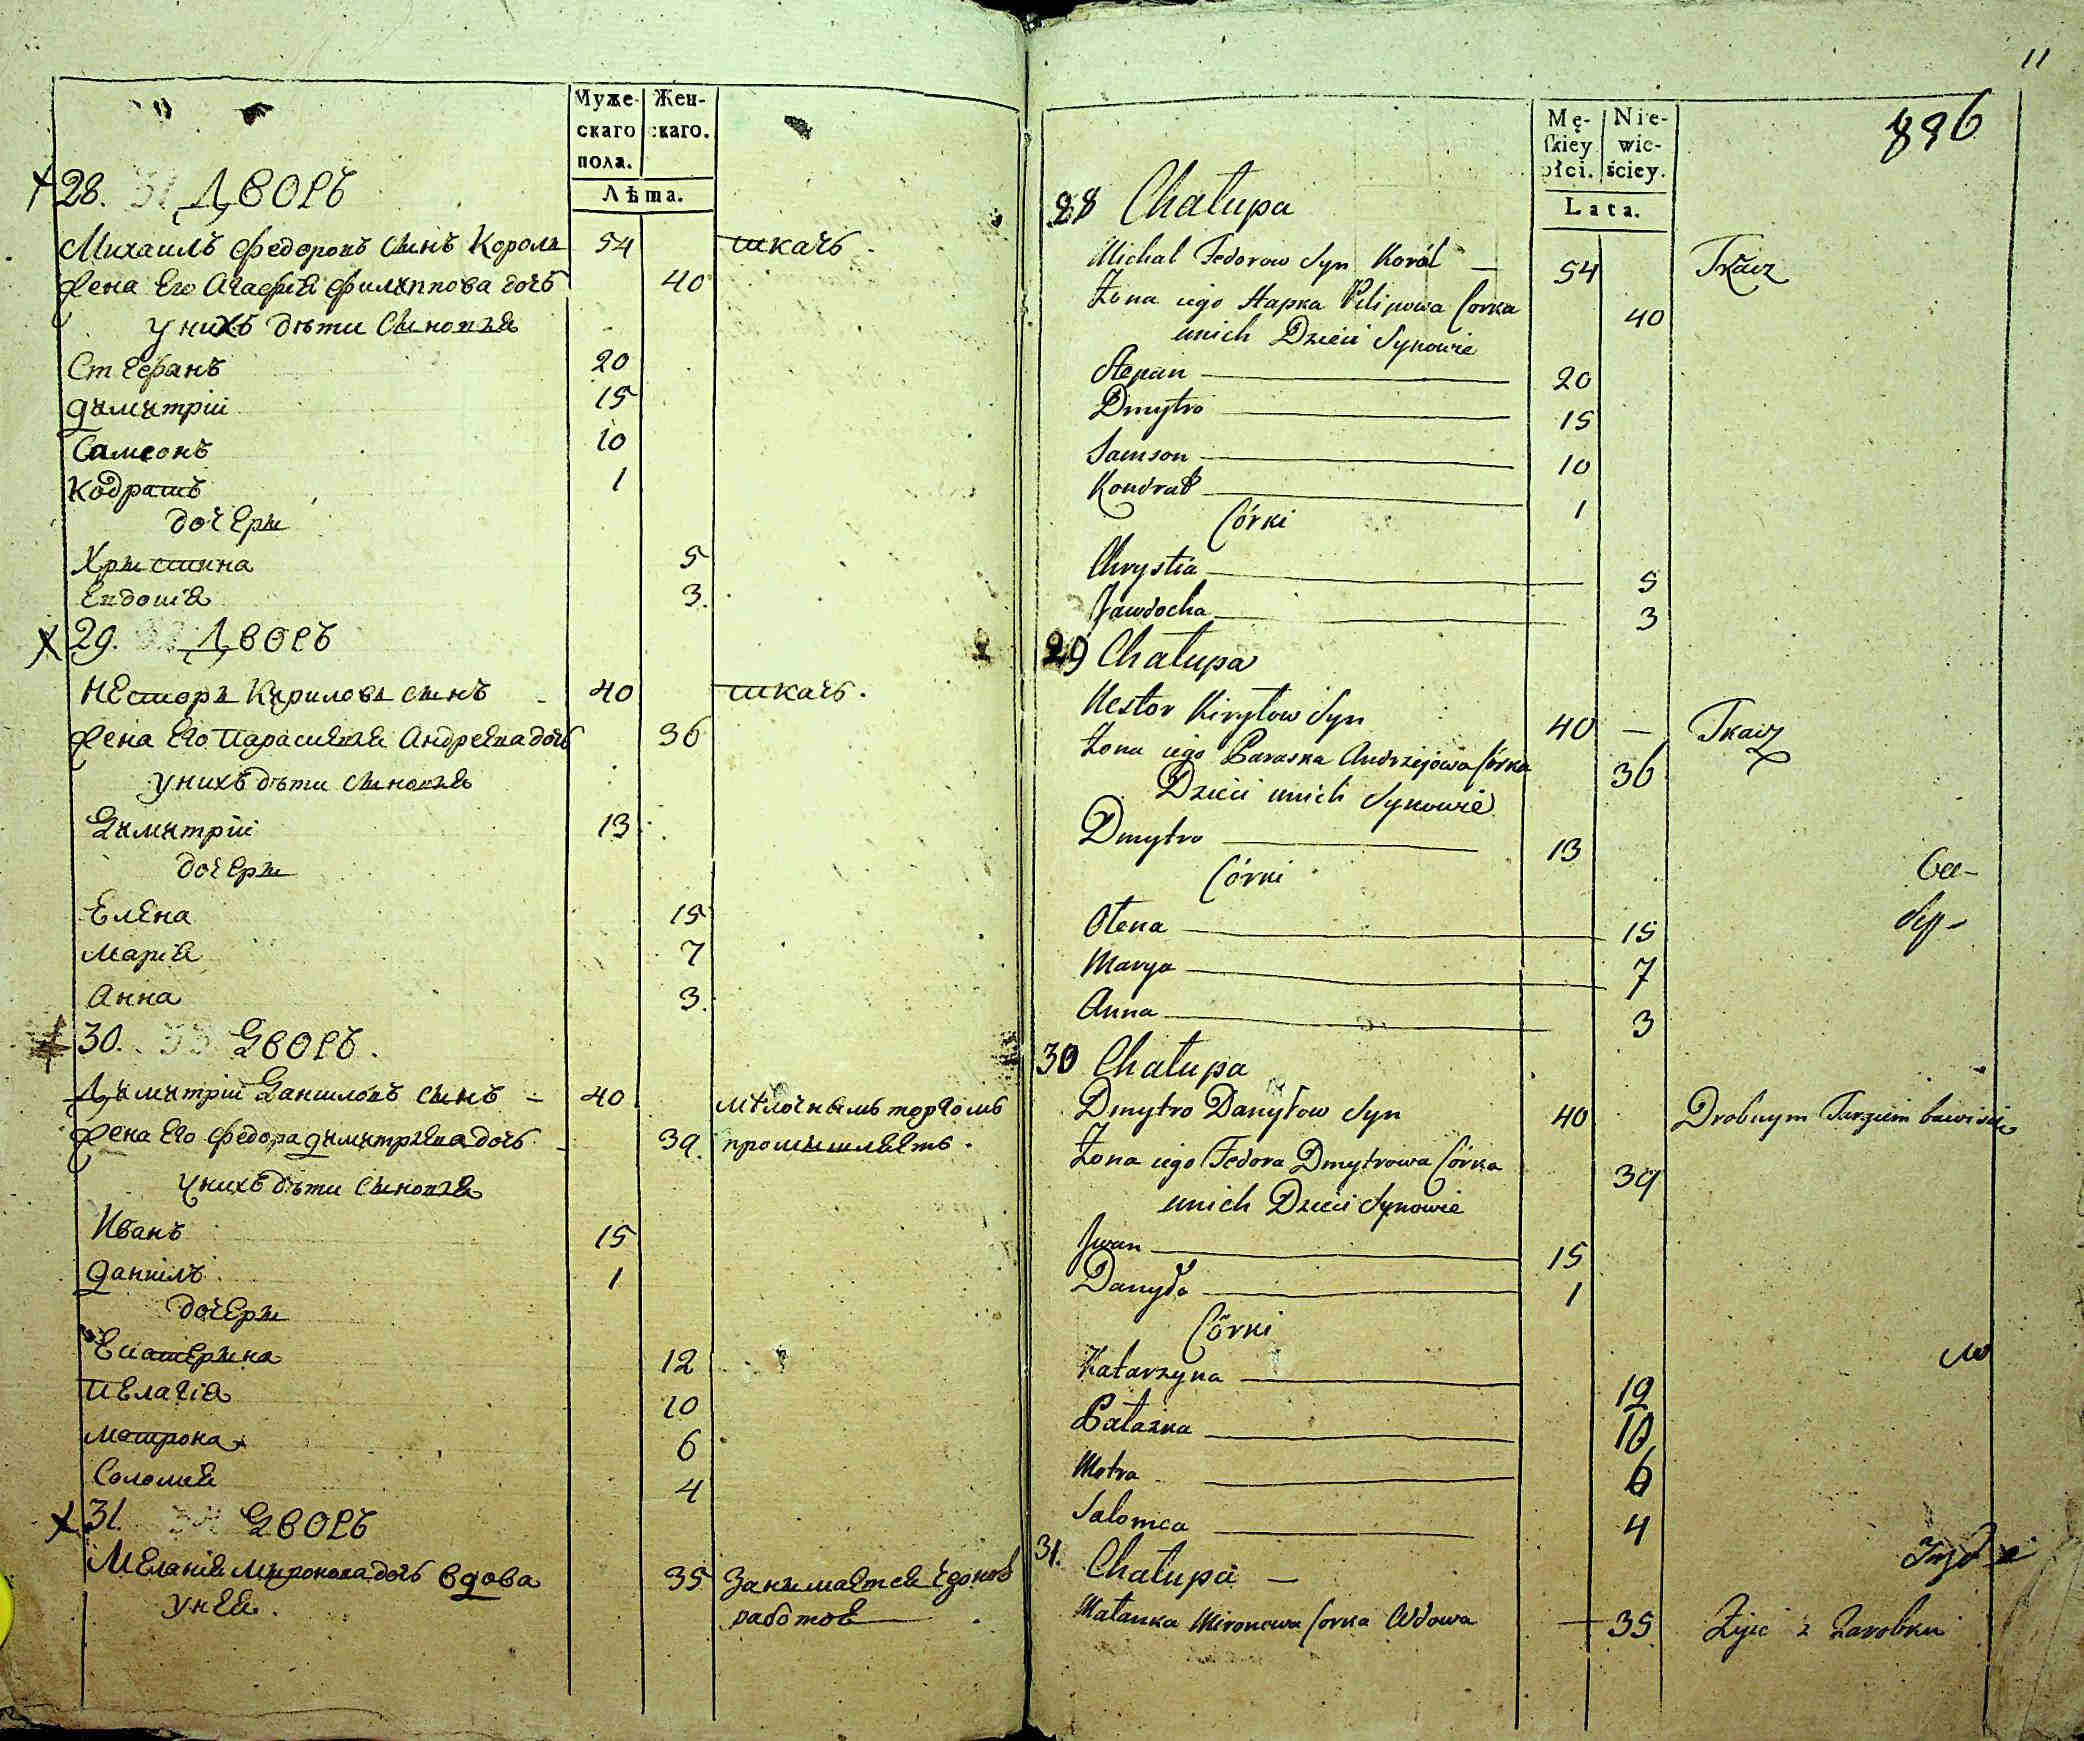 Муже- Жен-
скаго скаго.
пола.
Лѣта.
28. 31 Дворъ
Михаилъ Федоровъ сынъ Король 54 ткачь.
Жена Его Агафия Филиппова дочь 40
у нихъ дѣти сыновья
Стефанъ 20
Димитрій 15
Самсонъ 10
Кодратъ 1
дочери
Християна 5
Евдокія 3.
29. 32 Дворъ
Несторъ Кириловъ сынъ 40 ткачь.
Жена Его Параскевия Андреева дочь 36
у нихъ дѣти сыновья
Димитрій 13
дочери
Елена 15
Марія 7
Анна 3.
30. 33 Дворъ.
Димитрій Даниловъ сынъ 40 мѣлочнымъ торгомъ
Жена Его Федора Димитриева дочь 39. промышляетъ.
у нихъ дѣти сыновья
Иванъ 15
Даніилъ 1
дочери
Екатерина 12
Пелагія 10
Матрона 6
Соломия 4
31. Дворъ
Меланія Миронова дочь вдова 35 Занимается
у нея. работою
11
Mę- Nie-
skiey wie-
płci. ściey.
Lata.
896
28 Chałupa
Michał Fedorow Syn Koról 54 Tkacz
Żona iego Hapka Pilipowa Corka 40
unich Dzieci Synowie
Stepan 20
Dmytro 15
Samson 10
Kondrat 1
Córki
Chrystia 5
Jawdocha 3
29 Chałupa
Nestor Kiryłow Syn 40 Tkacz
Żona iego Paraska Andrzejowa Córka 36
Dzieci unich Synowie
Dmytro 13
Córki
Ołena 15
Marya 7
Anna 3
30 Chałupa
Dmytro Danyłow Syn 40 Drobnym Targiem bawi się
Żona iego Fedora Dmytrowa Córka 39
unich Dzieci Synowie
Jwan 15
Danyło 1
Córki
Katarzyna 12
Pałażka 10
Motra 6
Salomea 4
31. Chałupa
Małanka Mironowa Corka Wdowa 35 Żyie z Zarobku